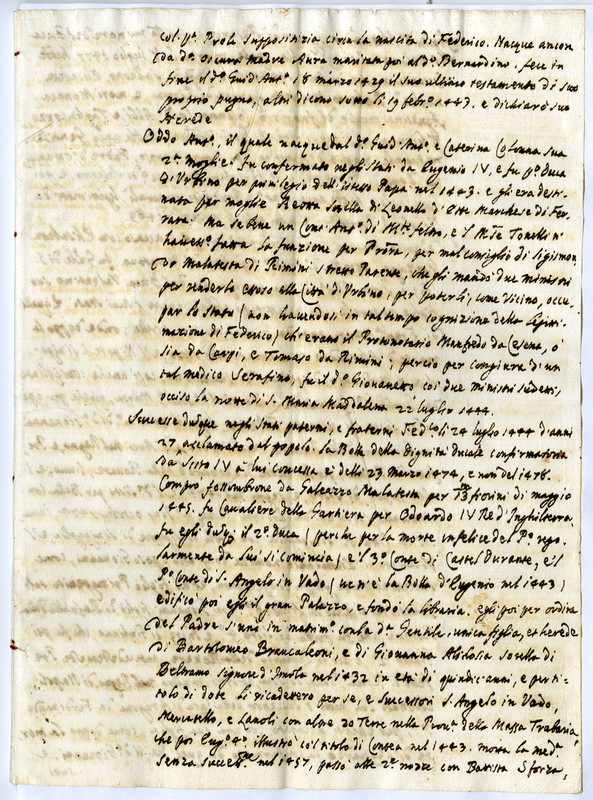 col. pª. Prole suppositizia circa la nascita di Federico. Nacque ancon
da dª. oscura Madre Aura maritata poi al dº. Bernardino. fece in
fine il dº. Guid'Antº. 18 marzo 1429 il suo ultimo testamento di suo
proprio pugno, altri dicono sotto li 19 febrº. 1443. e dichiarò suo
Herede
Oddo Antº., il quale nacque dal dº. Guid'Antº. e Caterina Colonna sua
2ª. Moglie: fu confermato negli Stati da Eugenio IV, e fu pº. Duca
d'Urbino per privilegio dell'istesso Papa nel 1443. e gli era desti-
nata per moglie Beotta sorella di Leonello d'Este Marchese di Fer-
rara: Ma sebene un Conte Antº. di Mte. feltro, e il
havesse fatta la funzione per, per mal consiglio di Sigismon-
do Malatesta di Rimini stretto Parente, che gli mandò due ministri
per renderlo esoso alla Città d'Urbino, per poterli, come vicino, occu-
par lo stato (non havendosi in tal tempo cognizione della legitti-
mazione di Federico) ch'erano il Protonotario Manfredo da Cesena, ò
sia da Carpi, e Tomaso da Rimini; perciò per congiura d'un
tal medico Serafino, fu il dº. Giovanetto coi due ministri sudetti,
occiso la notte di S. Maria Maddalena 22 luglio 1444.
Successe dunque negli Stati paterni, e fraterni Fedco. li 24 luglio 1444 d'anni
27, acclamato dal popolo. la Bolla della dignità ducale confirmatoria
da Sisto IV à lui concessa è delli 23 Marzo 1474, e non del 1476.
Comprò fossombrone da Galeazzo Malatesta per 13m fiorini di maggio
1445. fu Cavaliere della Gartiera per Odoardo IV Re d'Inghilterra
fu egli duque il 2º. Duca (perche per la morte infelice del Pº. rego-
larmente da lui si comincia) e'l 3º. Conte di Castel Durante, e'l
Pº. Conte di S. Angelo in Vado (ve n'è la Bolla d'Eugenio nel 1443)
edificò poi egli il gran Palazzo, e fondò la libraria. egli poi per ordine
del Padre s'unì in matrimº. con la dª. Gentile, unica figlia, et herede
di Bartolomeo Brancaleoni, e di Giovanna Alidosia sorella di
Beltramo signore d'Imola nel 1432 in età di quindic'anni, e per ti-
tolo di dote li ricadettero per se, e successori S. Angelo in Vado,
Mercatello, e Lamoli con altre 20 Terre nella Provª. della Massa Trabaria,
che poi Eugº. 4º. illustrò col titolo di Contea nel 1443. morta la medª.
senza successne. nel 1457, passò alle 2e. nozze con Battista Sforza,